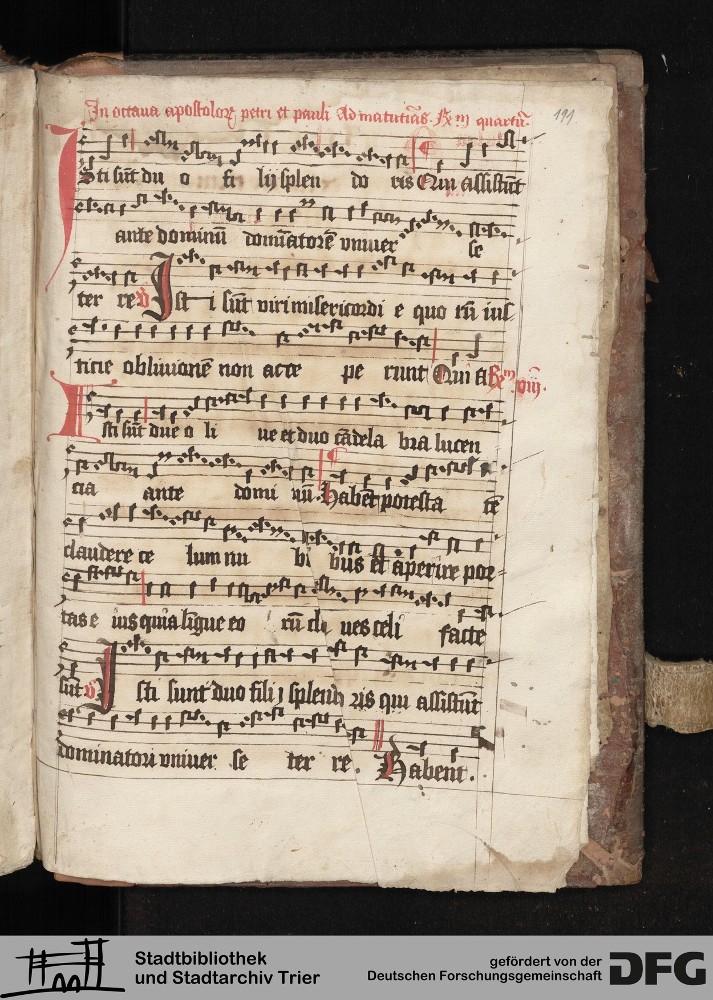 In octaua apostolor petri et pauli Ad matutinas. Rm quartū.
191
Isti sūt du o fi lij splen do ris Qui assistūt
ante dominū domīatorē vniuer se
ter re Ist i sūt viri misericordi e quo rū ius
ticie obliuionē non acce pe runt Qui a Rm viij.
Isti sūt due o li ue et duo cādela bra lucen
cia ante domi nū. Habēt potesta tē
claudere ce lum nu bi bus et aperire por
tas e ius quia ligue eo rū cla ues celi facte
sūt Isti sunt duo filij splendo ris qui assistūt
dominatori vniuer se ter re. Habent.
Stadtbibliothek
und Stadtarchiv Trier
gefördert von der
Deutschen Forschungsgemeinschaft
DFG